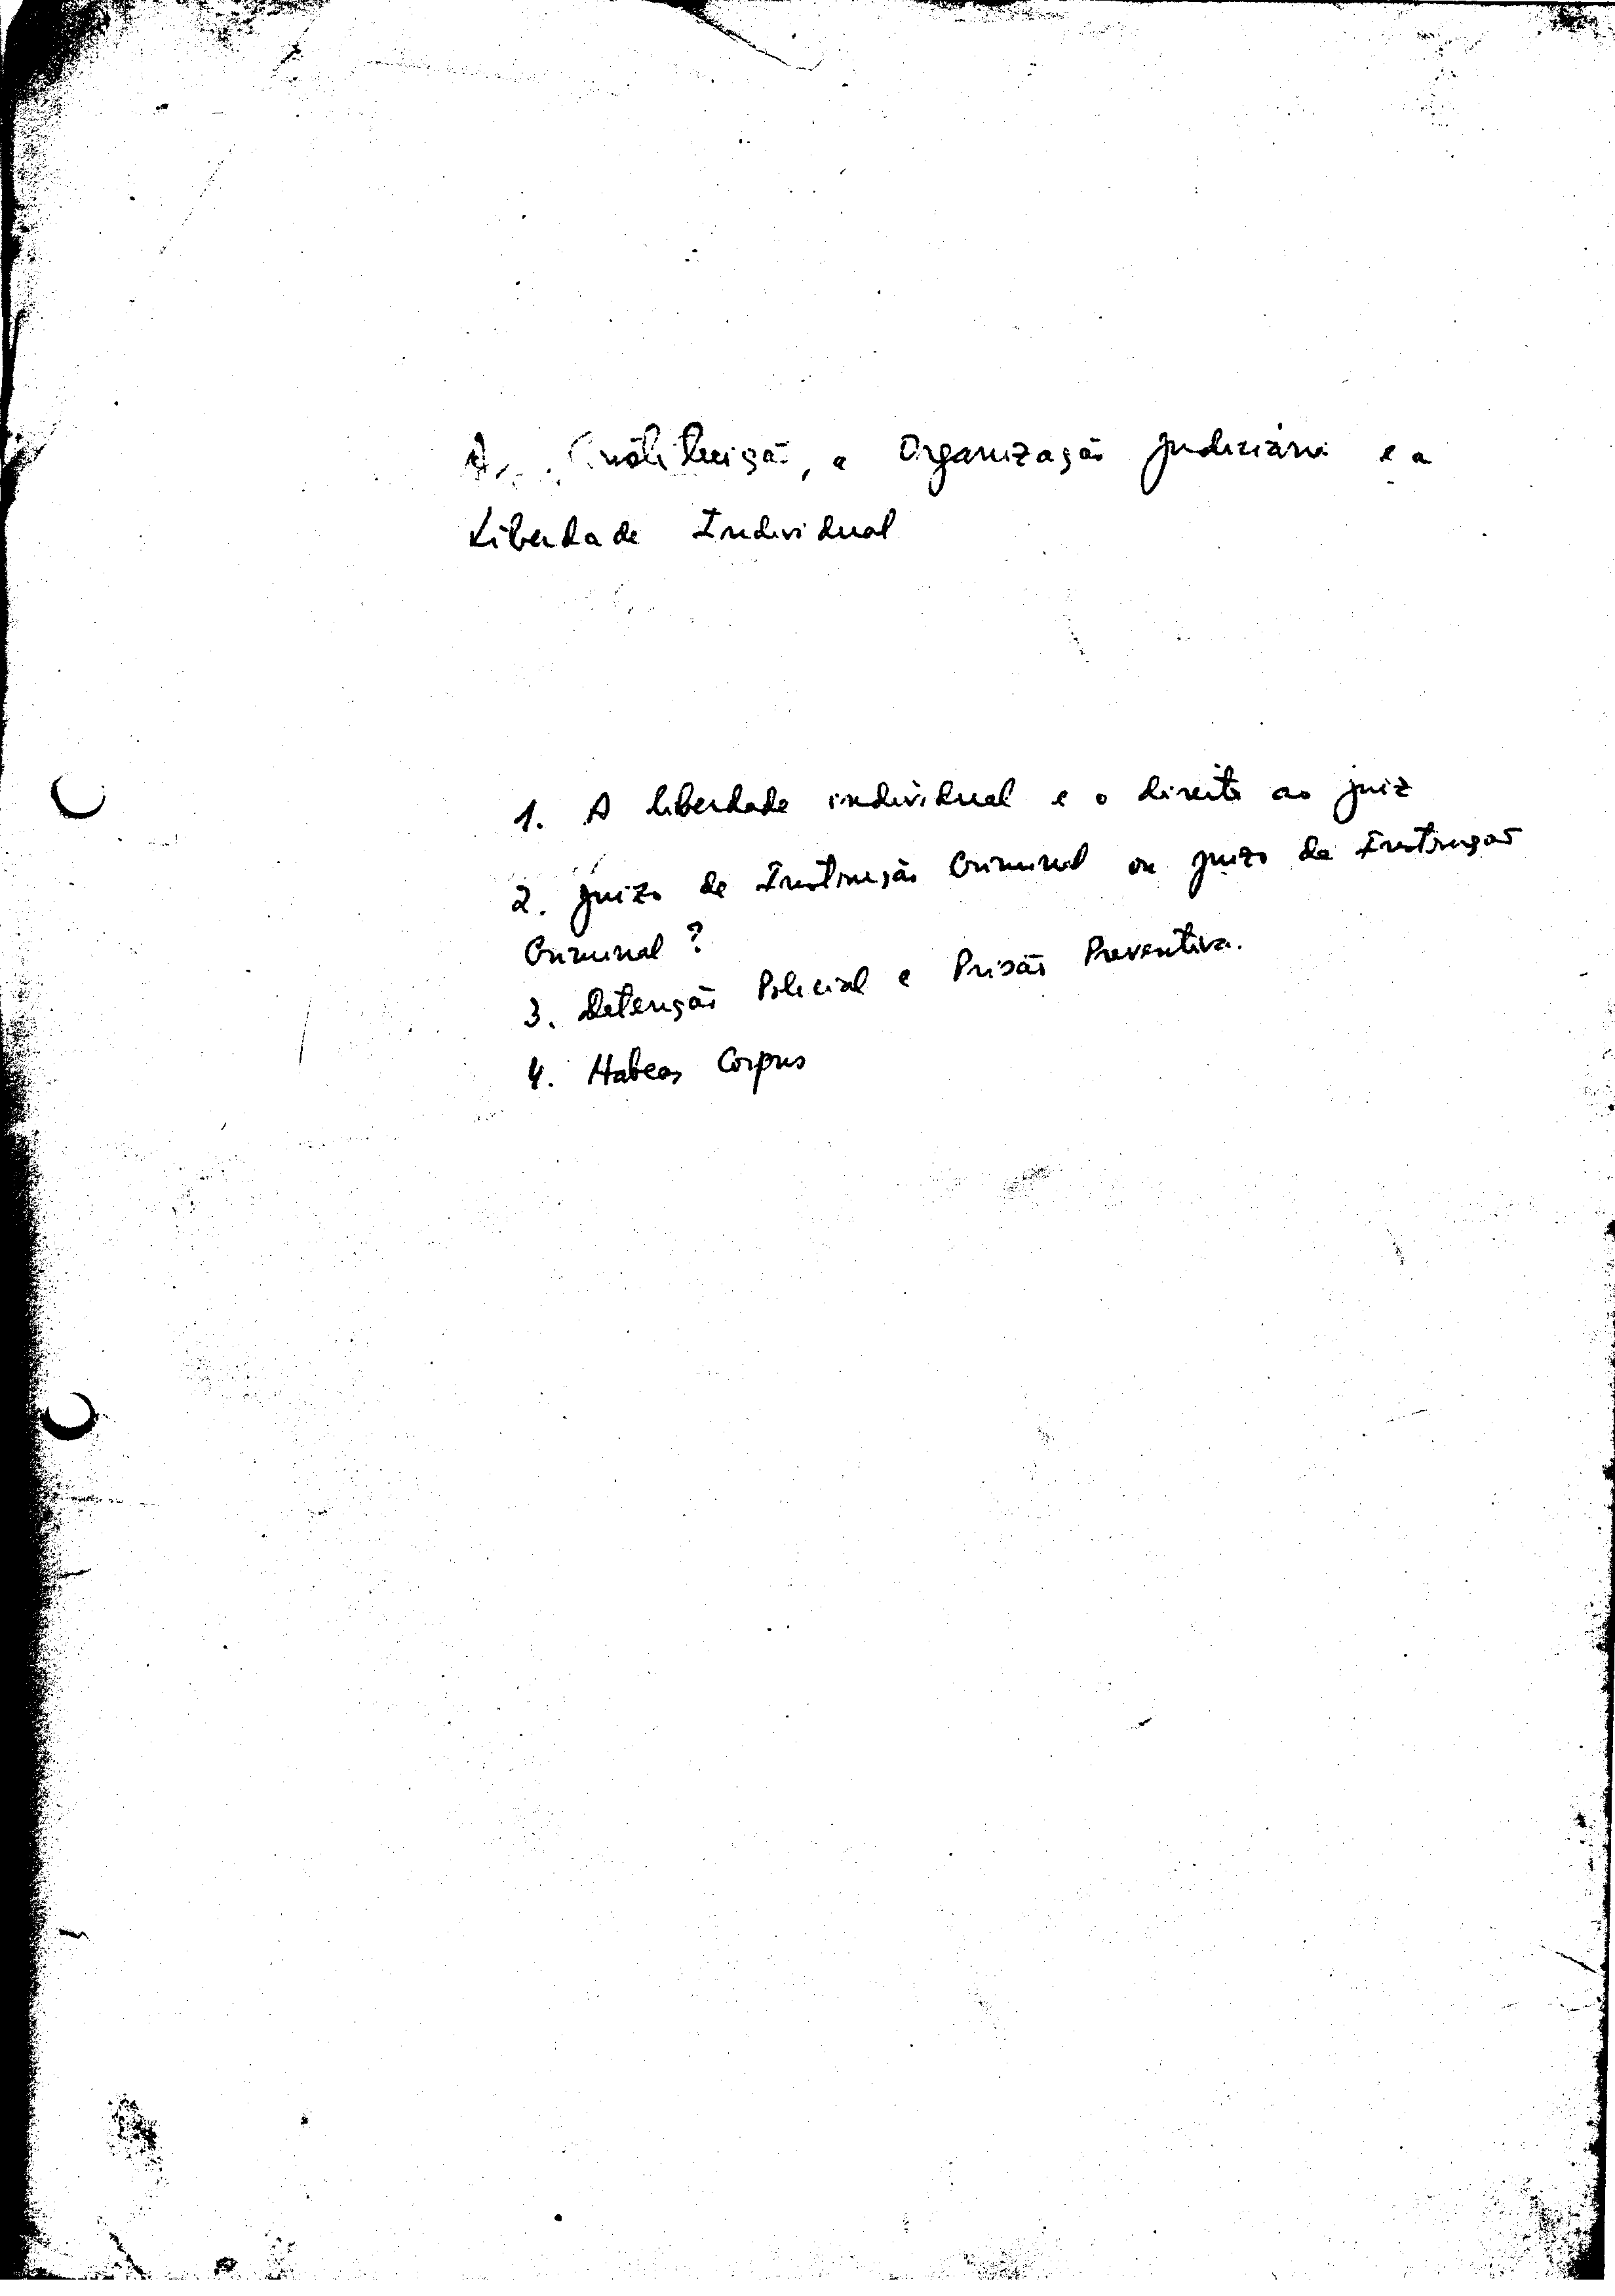 A Constituição, a Organização Judiciária e a
Liberdade Individual
1. A liberdade individual e o direito ao juiz
2. Juizo de Instrução Criminal ou juizo da Instrução
Criminal ?
3. Detenção Policial e Prisão Preventiva.
4. Habeas Corpus